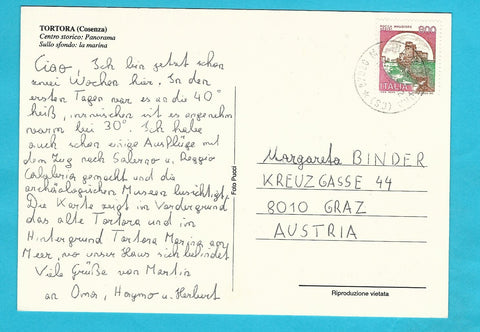 TORTORA (Cosenza)
Centro storico: Panorama
Sullo sfondo: la marina
Ciao, Ich bin jetzt schon
zwei Wochen hier. In den
ersten Tagen war es an die 40°
heiß, inzwischen ist es angenehm
warm bei 30°. Ich habe
auch schon einige Ausflüge mit
dem Zug nach Salerno u. Reggio
Calabria gemacht und die
archäologischen Museen besichtigt.
Die Karte zeigt im Vordergrund
das alte Tortora und im
Hintergrund Tortora Marina am
Meer, wo unser Haus sich befindet
Viele Grüße von Martin
an Oma, Haymo u. Herbert
Foto Pucci
ROCCA MAGGIORE
800
ITALIA
Margareta BINDER
KREUZGASSE 44
8010 GRAZ
AUSTRIA
Riproduzione vietata